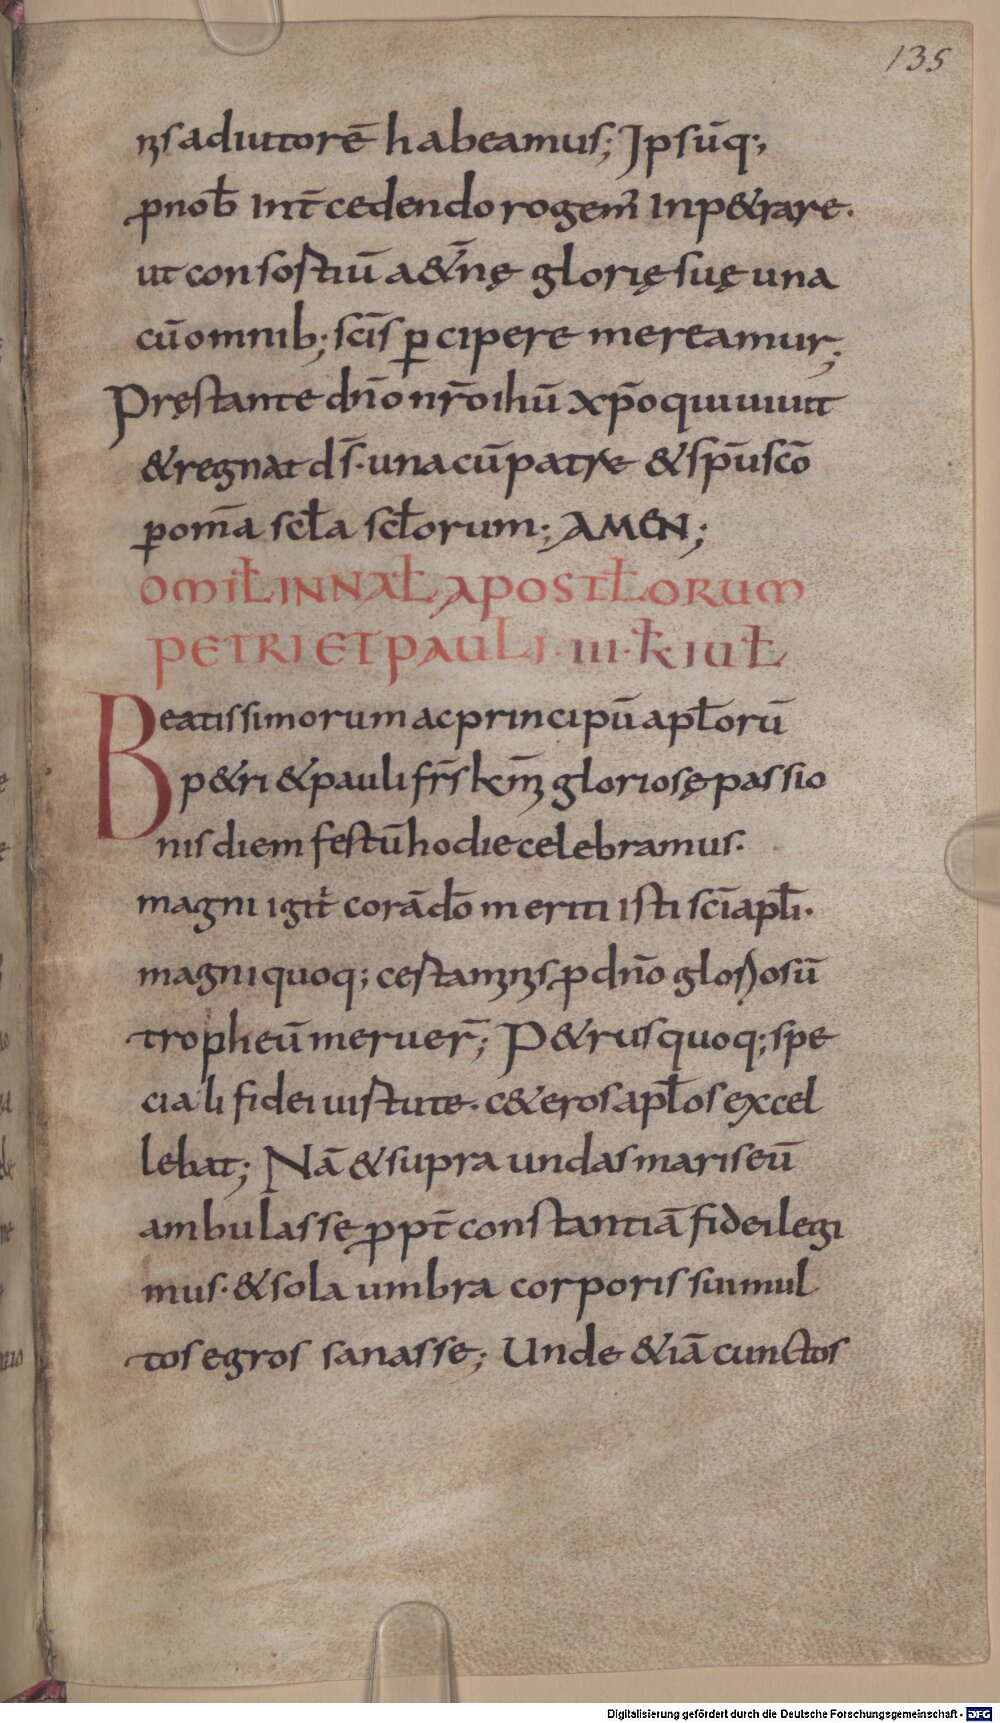 135
nꝫs adiutorē habeamus; Ipsūq;,
ꝓnob̄ int̄cedendo rogem̄ inp&rare.
ut consostiū a&̄nę glorię suę una
cū omnib; sc̄is ꝑcipere mereamur;
Pręstante dn̄o nr̄o ihū xp̄o qui uiuit
& regnat ds̄. una cū patre & sp̄u sc̄o
ꝑ om̄a scl̄a scl̄orum; AMEN;
OMIL̄ IN NAL̄ APOSTL̄ORUM
PETRI ET PAULI. III. K̄. IUL̄
Beatissimorum ac principū apl̄orū
p&ri & pauli fr̄s km̄ꝫ gloriosę passio
nis diem festū hodie celebramus.
magni igit̄ corā dō meriti isti sc̄i apl̄i.
magni quoq; certamꝫnꝫs ꝓ dn̄o gloriosū
tropheū meruer̄; P&rus quoq; spe
ciali fidei uirtute. c&eros apl̄os excel
lebat; Nā & supra undas maris eū
ambulasse ꝓpt̄ constantiā fidei legi
mus. & sola umbra corporis sui mul
tos egros sanasse; Unde &iā cunctos
Digitalisierung gefördert durch die Deutsche Forschungsgemeinschaft - DFG